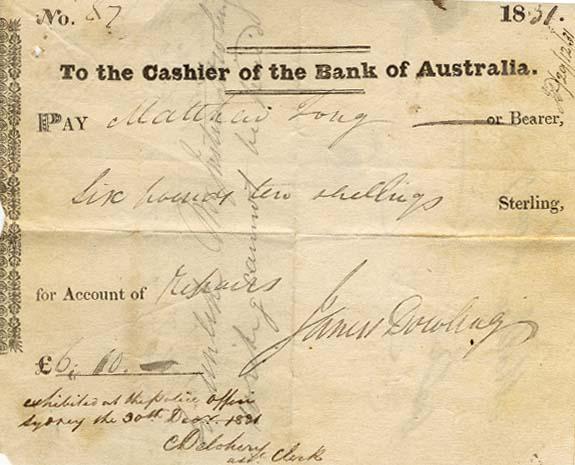 No. 87 1831.
To the Cashier of the Bank of Australia.
PAY Matthew Long or Bearer,
Six pounds ten shellings Sterling,
for Account of Repairs
James Dowling
£6, 10. —
exhibited at the Police Office
Sydney the 30th Decr. 1831
asst. Clerk